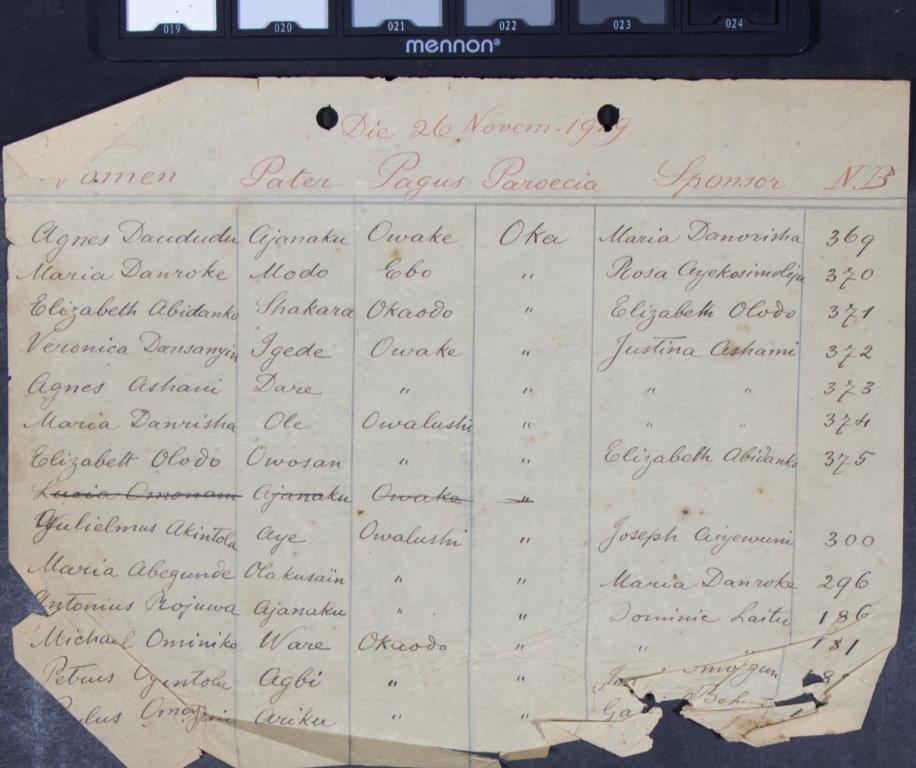 019 020 021 022 023 024
mennon®
Die 26 Novem. 1919
Nomen Pater Pagus Paroecia Sponsor N.B
Agnes Daududu Ajanaku Owake Oka Maria Danorisha 369
Maria Danroke Modo Ebo " Rosa Ayekosimoliju 370
Elizabeth Abidanko Shakara Okaodo " Elizabeth Olodo 371
Veronica Dansanyin Igede Owake " Justina Ashami 372
Agnes Ashani Dare " " " " 373
Maria Danrisha Ole Owalushi " " " 374
Elizabett Olodo Owosan " " Elizabeth Abidanko 375
Lucia Omonam Ajanaku Owake "
Gulielmus Akintola Aye Owalushi " Joseph Aiyewumi 300
Maria Abegunde Olakusaïn " " Maria Danroke 296
Antonius Rojuwa Ajanaku " " Dominic Laitu 186
Michael Ominiko Ware Okaodo " " " 181
Petrus Ogintolu Agbi " "
Ariku " "